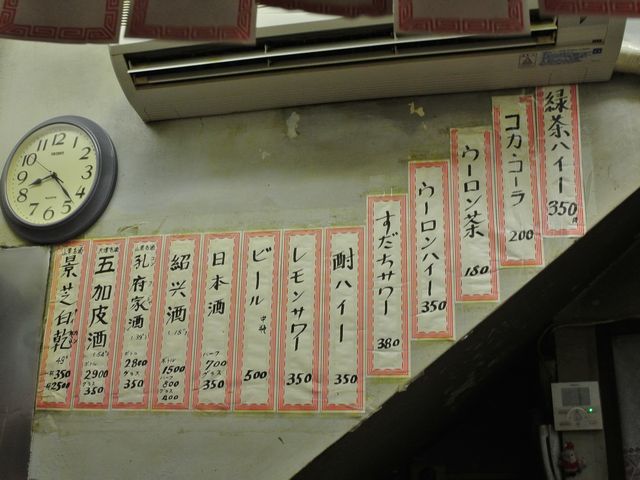 緑茶ハイー
350円
コカ・コーラ
200
ウーロン茶
180
ウーロンハイー
350
すだちサワー
380
酎ハイー
350
レモンサワー
350
ビール
中ビン
500
日本酒
ハーフ
700
グラス
350
紹兴酒
ボトル
1500
800
グラス
400
孔府家酒
ボトル
2800
グラス
350
五加皮酒
ボトル
2900
グラス
350
景芝白乾
350
2500
SEIKO
12
1
2
3
4
5
6
7
8
9
10
11